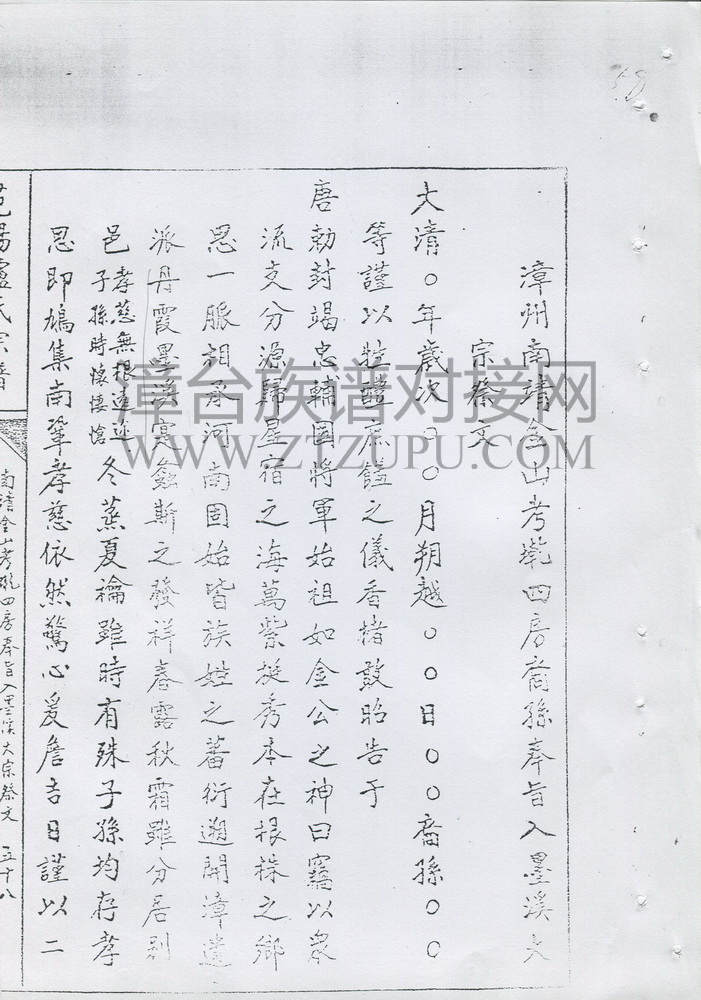 58
漳州南靖金山考坑四房裔孫奉旨入墨溪大
宗祭文
大清○年歲次○○月朔越○○日○○裔孫○○
等謹以牲醴庶饈之儀香楮敢昭告于
唐勅封竭忠輔國將軍始祖如金公之神曰竊以眾
流支分源歸星宿之海萬紫挺秀本在根株之鄉
思一脈相承河南固始皆族姓之蕃衍遡開漳遺
派丹霞墨溪寔螽斯之發祥春露秋霜雖分居別
邑孝慈無根遠迩子孫時懷悽愴冬蒸夏禴雖時有殊子孫均存孝
思即鳩集南鞏孝慈依然驚心爰詹吉日謹以二
范陽盧氏宗譜
南靖金山考坑四房奉旨入墨溪大宗祭文 五十八
章台族谱对接网
WWW.ZTZUPU.COM